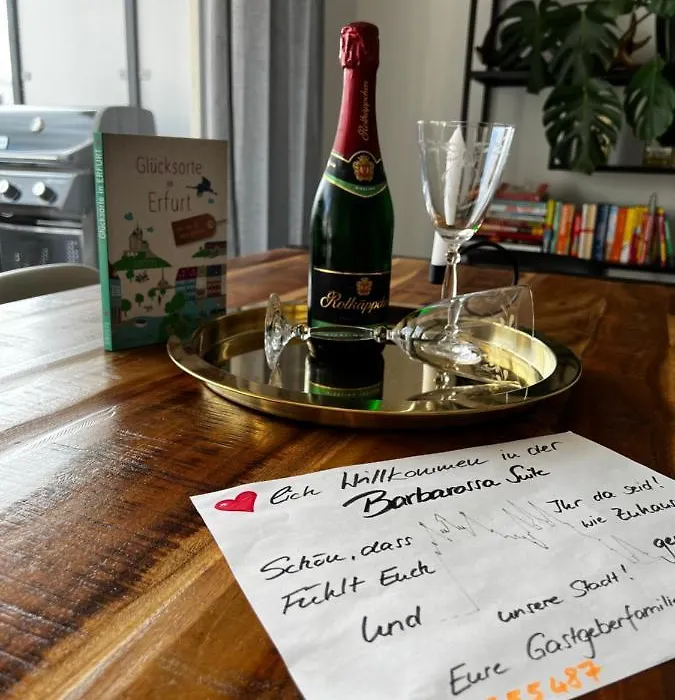 Glücksorte
in
Erfurt
Glücksorte in ERFURT
Rotkäppchen
Rotkäppchen
lich Willkommen in der
Barbarossa Suite
Schön, dass Ihr da seid!
Fühlt Euch wie Zuhaus
und unsere Stadt!
Eure Gastgeberfamilie
55487